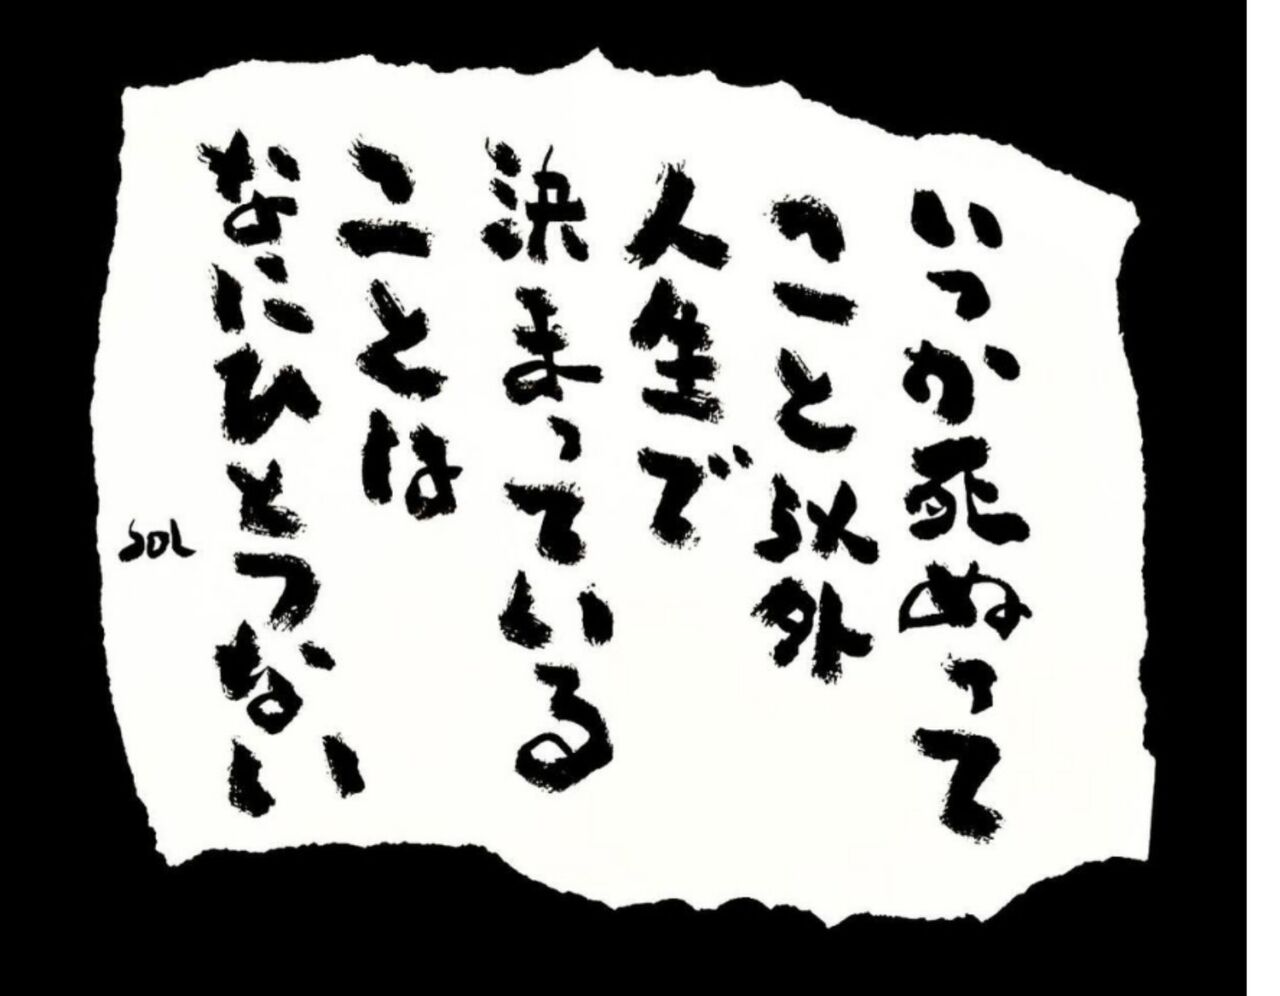 いつか死ぬって
こと以外
人生で
決まっている
ことは
なにひとつない
SOL